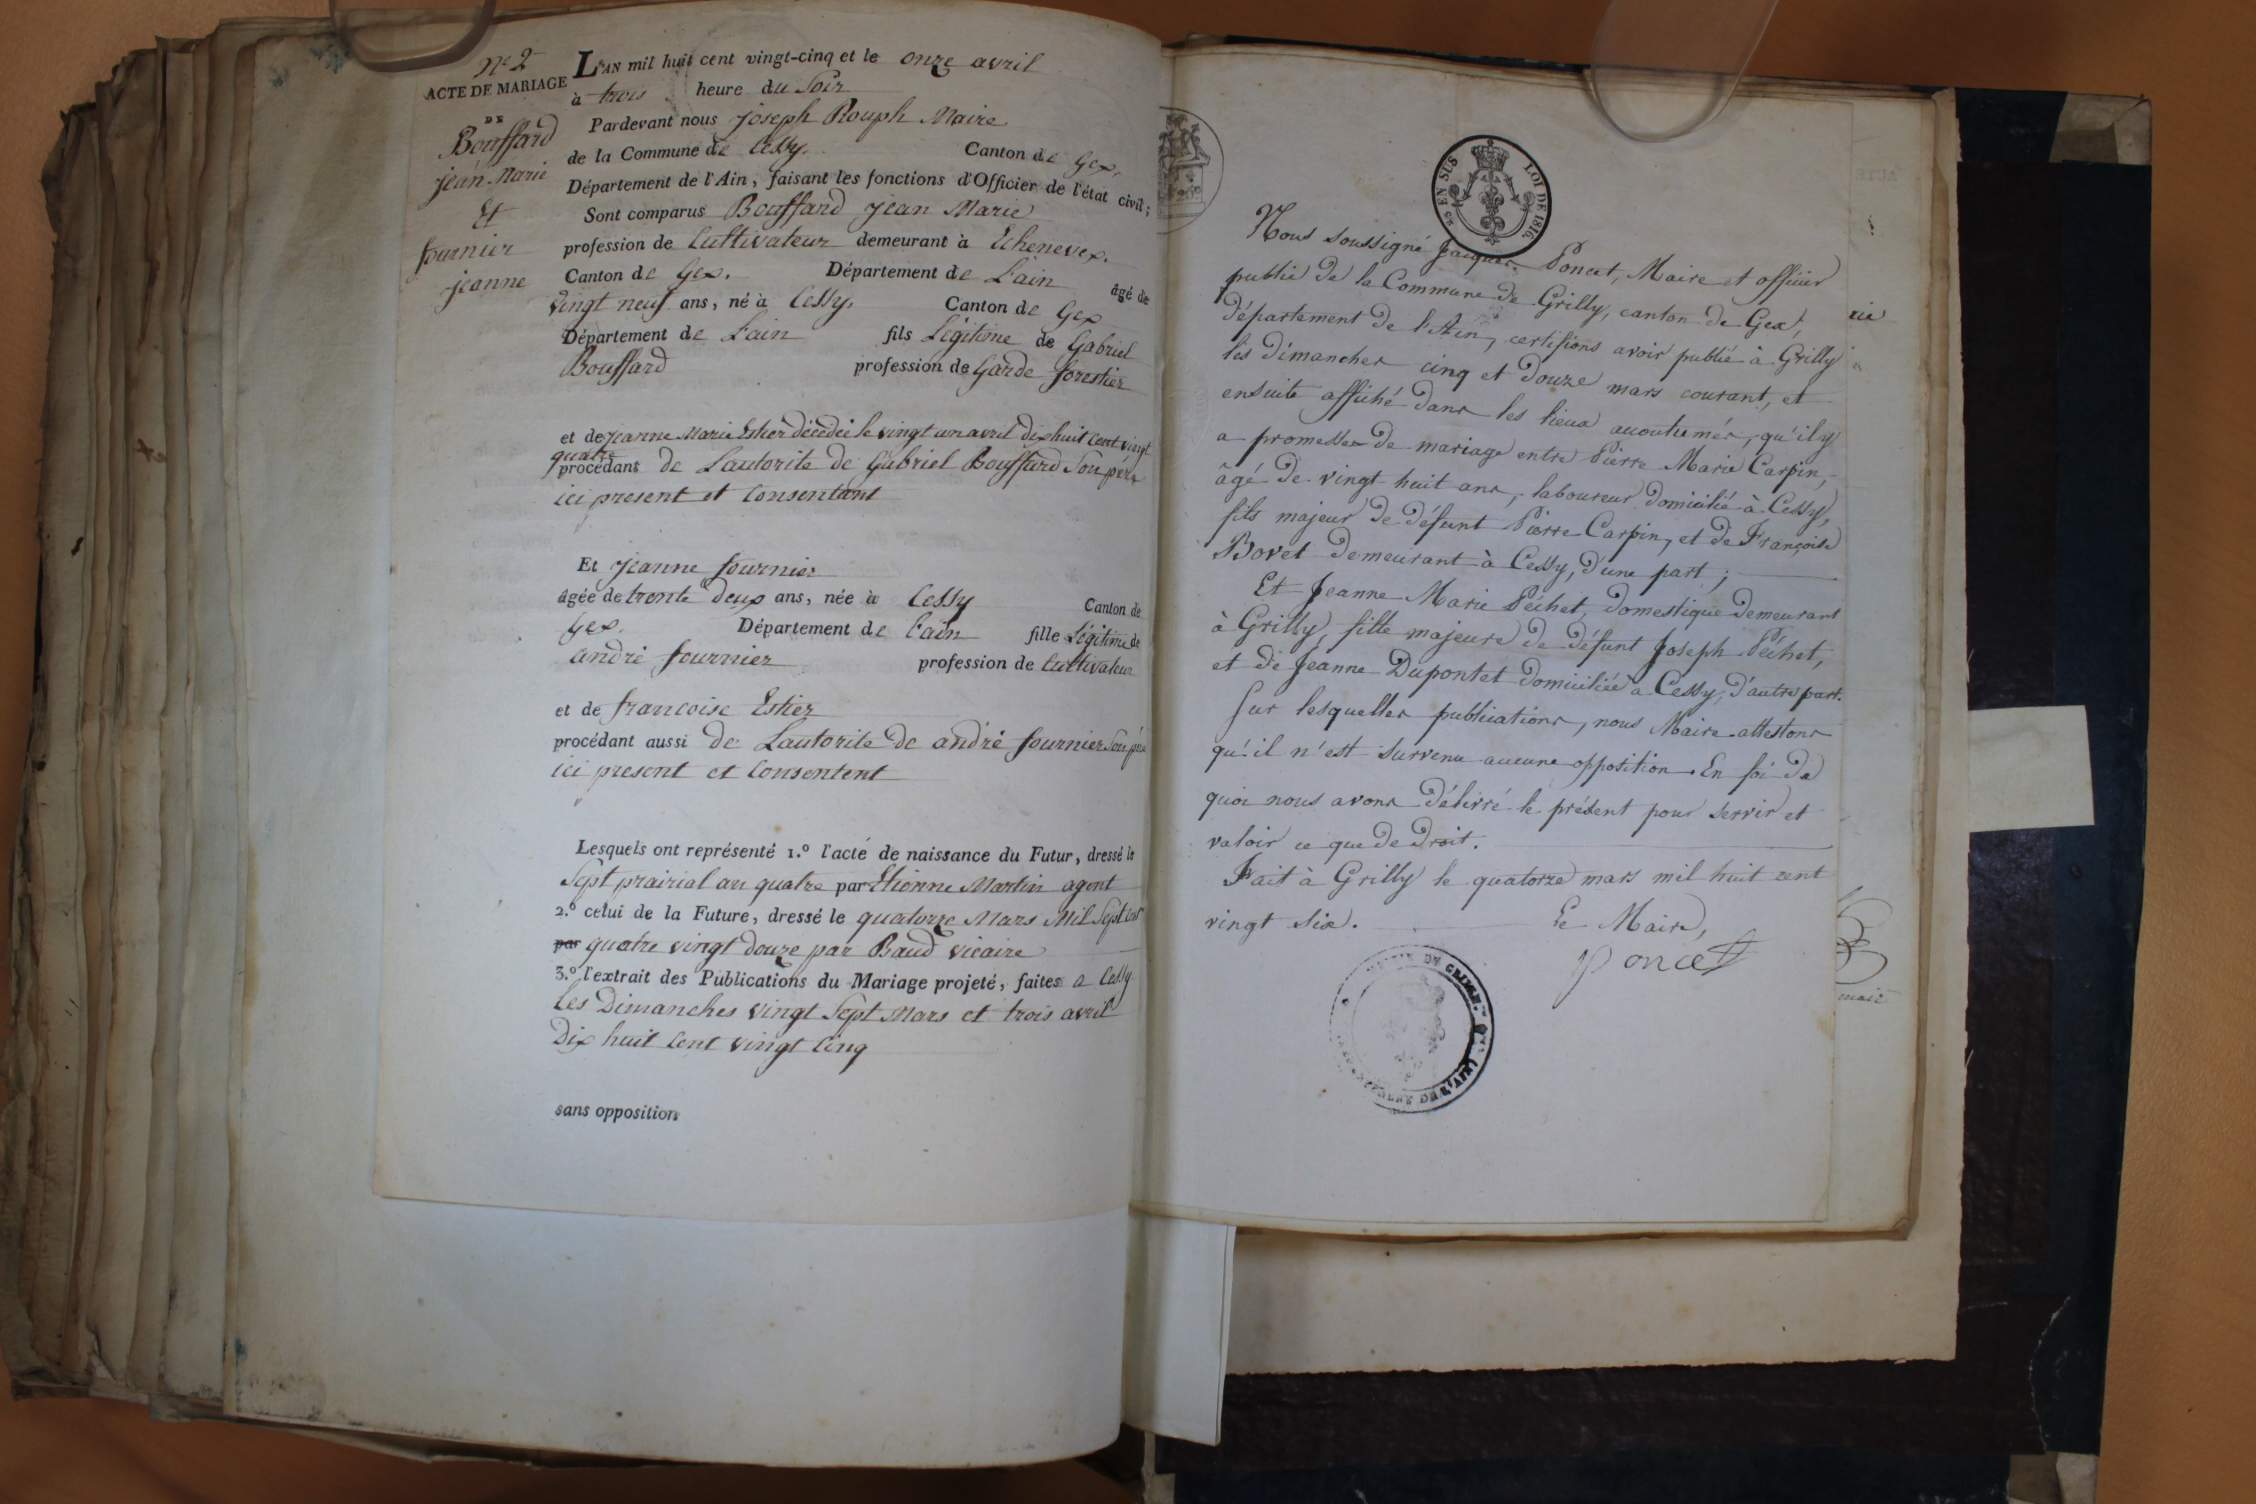 N.º 2
ACTE DE MARIAGE
DE
Bouffard
jean Marie
Et
fournier
jeanne
L'AN mil huit cent vingt-cinq et le onze avril
à trois heure du Soir
Pardevant nous joseph Rouph Maire
de la Commune de Cessy. Canton de Gex,
Département de l'Ain, faisant les fonctions d'Officier de l'état civil;
Sont comparus Bouffard jean Marie
profession de Cultivateur demeurant à Echenevex.
Canton de Gex. Département de L'ain âgé de
vingt neuf ans, né à Cessy, Canton de Gex
Département de L'ain fils Légitime de Gabriel
Bouffard profession de Garde forestier
et de jeanne Marie Estier décédéé le vingt un avril dix huit Cent vingt
quatre
procédant de Lautorite de Gabriel Bouffard Son père
ici present et Consentant
Et jeanne fournier
âgée de trente deux ans, née à Cessy Canton de
Gex. Département de L'ain fille Légitime de
andré fournier profession de Cultivateur
et de francoise Estier
procédant aussi de Lautorite de andré fournier Son père
ici present et Consentent
Lesquels ont représenté 1.º l'acte de naissance du Futur, dressé le
Sept prairial an quatre par Etienne Martin agent
2.º celui de la Future, dressé le quatorze Mars Mil Sept Cent
par quatre vingt douze par Baud vicaire
3.º l'extrait des Publications du Mariage projeté, faites a Cessy
Les Dimanches vingt Sept Mars et trois avril
Dix huit Cent vingt Cinq
sans opposition
25 EN SUS LOI DE 1816.
Nous soussigné Jacques Poncet, Maire et officier
public de la Commune de Grilly, canton de Gex,
département de l'Ain, certifions avoir publié à Grilly
les dimanches cinq et douze mars courant, et
ensuite affiché dans les lieux accoutumés, qu'il y
a promesses de mariage entre Pierre Marie Carpin,
âgé de vingt huit ans, laboureur domicilié à Cessy,
fils majeur de défunt Pierre Carpin, et de Françoise
Bovet demeurant à Cessy, d'une part;
Et Jeanne Marie Péchet, domestique demeurant
à Grilly, fille majeure de défunt Joseph Péchet,
et de Jeanne Dupontet domiciliée à Cessy, d'autre part.
Sur lesquelles publications, nous Maire attestons
qu'il n'est survenu aucune opposition. En foi de
quoi nous avons délivré le présent pour servir et
valoir ce que de droit.
Fait à Grilly le quatorze mars mil huit cent
vingt six. Le Maire,
Poncet